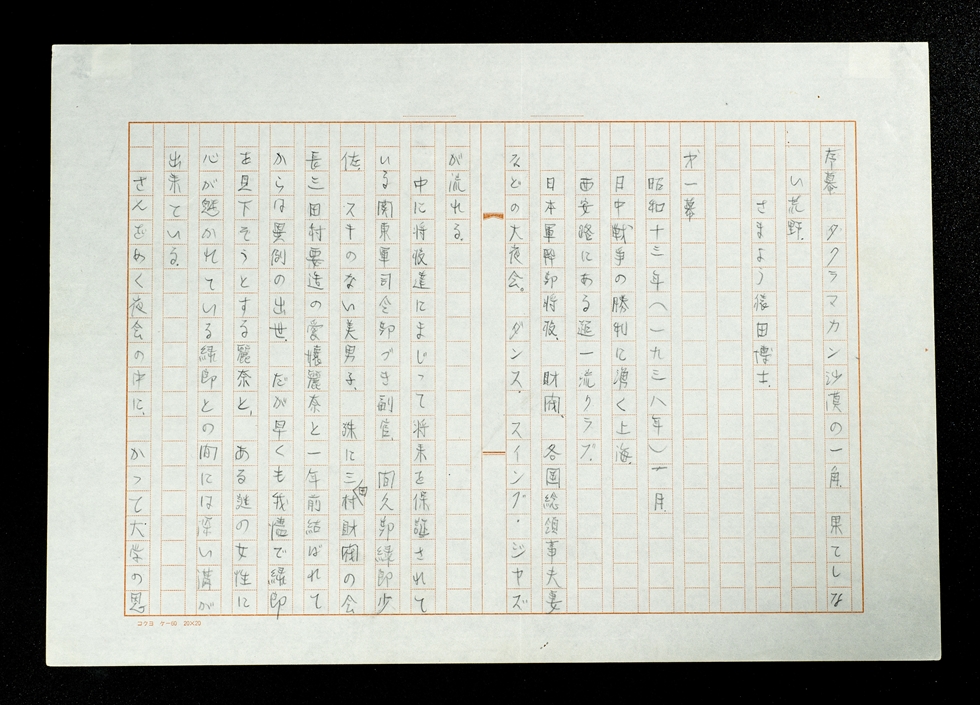 序幕　タクラマカン沙漠の一角、果てしな
い荒野。
さまよう篠田博士。
才一幕
昭和十三年（一九三八年）一月。
日中戦争の勝利に湧く上海。
西安路にある超一流クラブ。
日本軍幹部将校、財閥、各国総領事夫妻
などの大夜会。ダンス、スイング・ジャズ
が流れる。
中に将校達にまじって将来を保証されて
いる関東軍司令部づき副官、間久部緑郎少
佐。スキのない美男子。殊に三田村財閥の会
長三田村要造の愛嬢麗奈と一年前結ばれて
からは異例の出世。だが早くも我儘で緑郎
を見下そうとする麗奈と、ある謎の女性に
心が魅かれている緑郎との間には深い溝が
出来ている。
さんざめく夜会の中に、かつて大学の恩
コクヨ ケー60 20×20